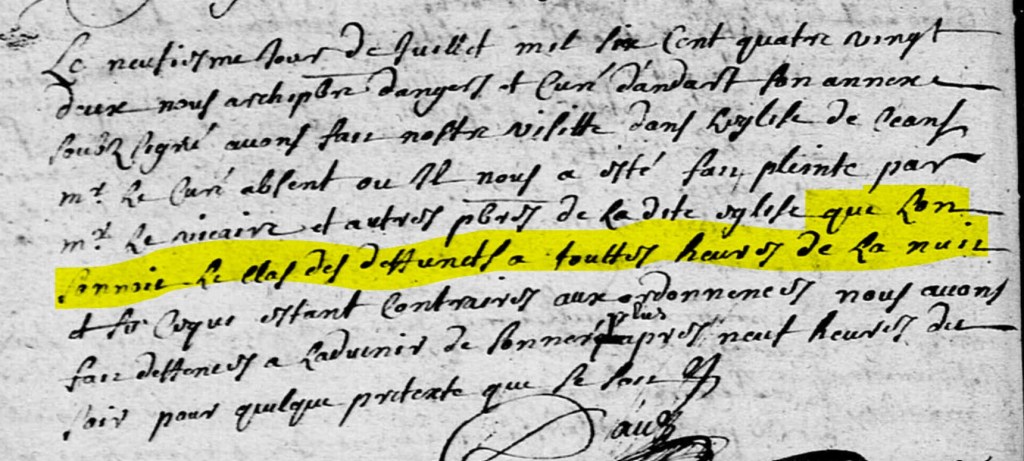 Le neufiesme Jour de Juillet mil six Cent quatre vingt
deux nous archipbre dangers et Curé dandart son annexe
soubz signé avons fait nostre visitte dans Leglise de Ceans
mr. Le Curé absent ou Il nous a esté fait pleinte par
mr. Le vicaire et autres pbres de La dite eglise que Lon
sonnoit Le clas des deffuncts a touttes heures de La nuit
et Ceque estant Contraires aux ordonnences nous avons
fait deffences a Ladvenir de sonner plus apres neuf heures du
soir pour quelque pretexte que Ce soit